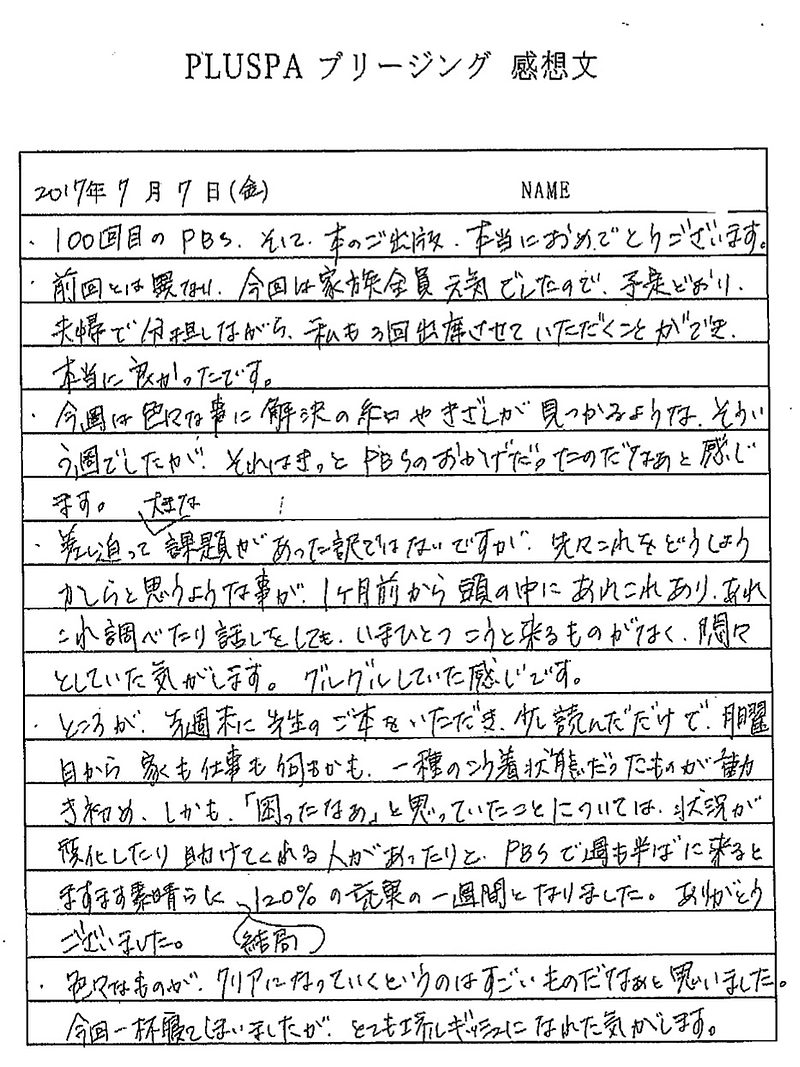 PLUSPA ブリージング 感想文
2017年 7月 7日(金) NAME
・100回目の PBS、そして、本のご出版、本当におめでとうございます。
・前回とは異なり、今回は家族全員 元気でしたので、予定どおり、
夫婦で分担しながら、私も3回出席させていただくことができ、
本当に良かったです。
・今週は色々な事に解決の糸口やきざしが見つかるような、そうい
う週でしたが、それはきっと PBSのおかげだったのだなぁと感じ
ます。 大きな
・差し迫って課題があった訳ではないですが、先々これをどうしよう
かしらと思うような事が、1ヶ月前から頭の中にあれこれあり、あれ
これ調べたり話しをしても、いまひとつこうと来るものがなく、悶々
としていた気がします。グルグルしていた感じです。
・ところが、先週末に先生のご本をいただき、少し読んだだけで、月曜
日から家も仕事も何もかも、一種のこう着状態だったものが動
き初め、しかも、「困ったなぁ」と思っていたことについては、状況が
変化したり助けてくれる人があったりと、PBSで週も半ばに来ると
ますます素晴らしく、120%の充実の一週間となりました。ありがとう
ございました。 結局
・色々なものが、クリアになっていくというのはすごいものだなぁと思いました。
今回一杯寝てしまいましたが、とてもエネルギッシュになれた気がします。